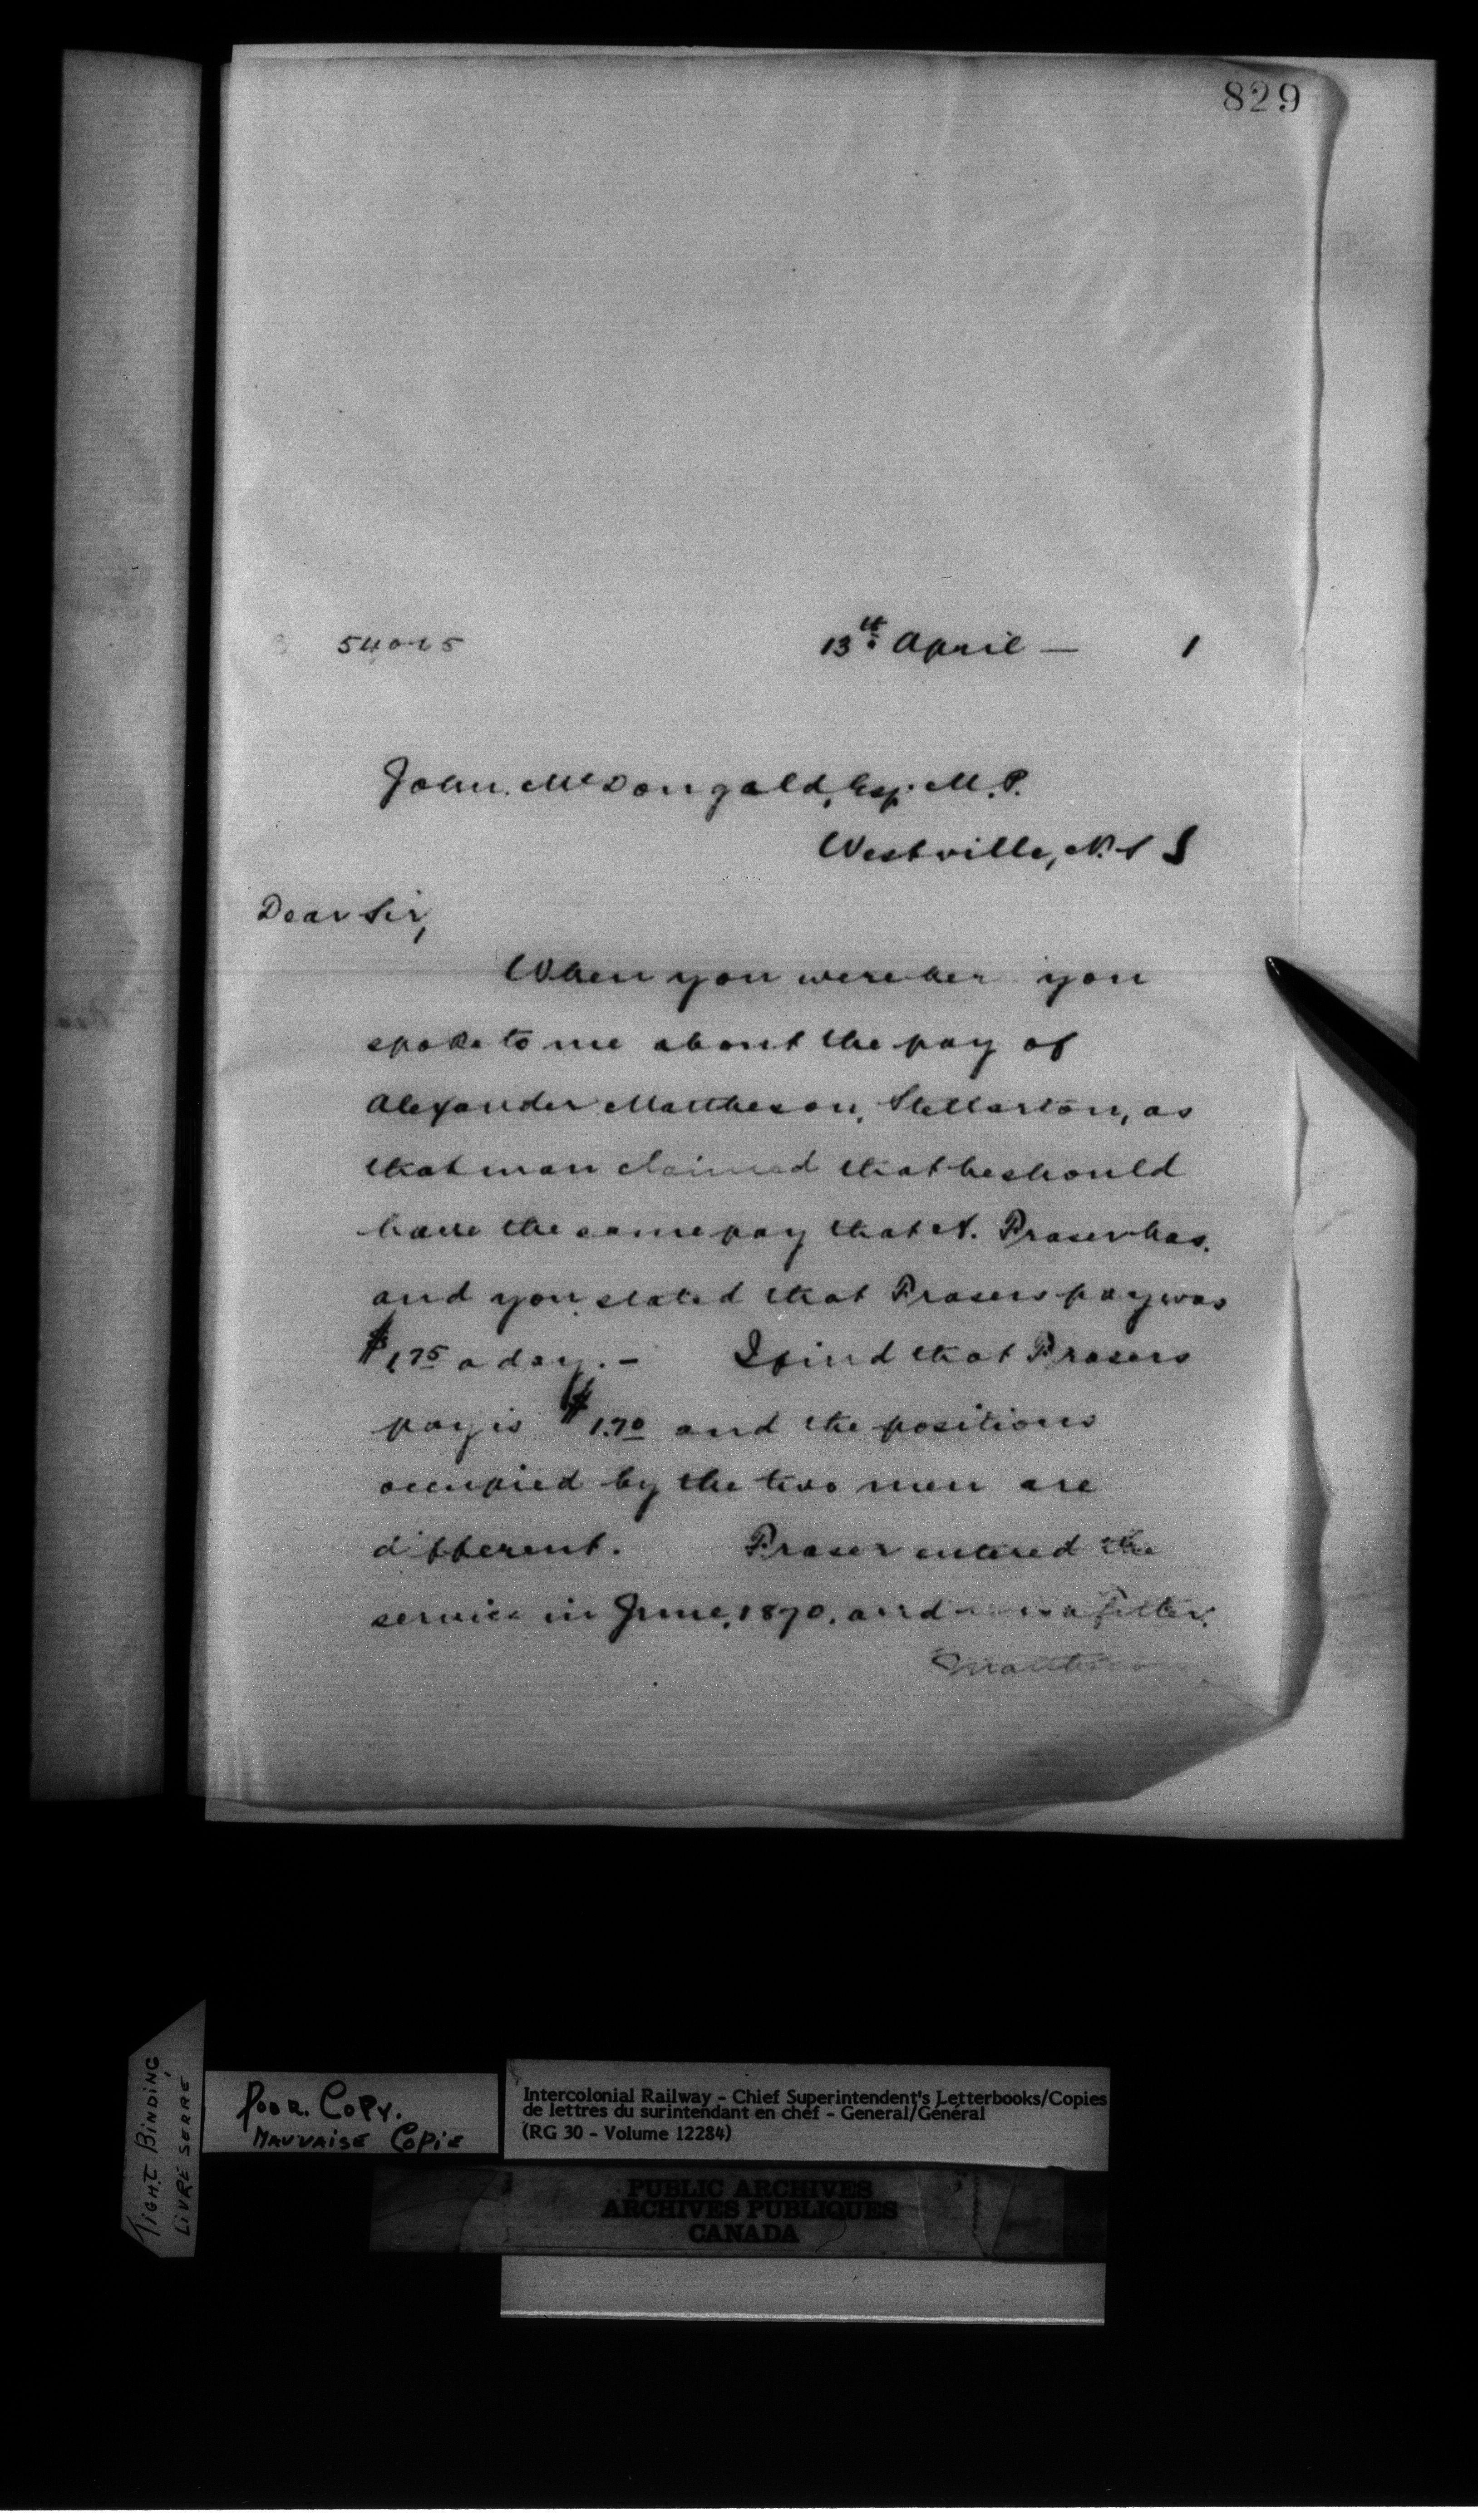 829
54025
13th April — 1
John McDougald, Esq. M.P.
Westville, N.S
Dear Sir,
When you were here you
spoke to me about the pay of
Alexander Mattheson, Stellarton, as
that man claimed that he should
have the same pay that A. Fraser has.
and you stated that Frasers pay was
$1.75 a day. — I find that Frasers
pay is $1.70 and the positions
occupied by the two men are
different. Fraser entered the
service in June, 1870, and was a fitter.
Mattheson
TIGHT BINDING
LIVRE SERRÉ
POOR COPY.
MAUVAISE COPIE
Intercolonial Railway - Chief Superintendent's Letterbooks/Copies
de lettres du surintendant en chef - General/Général
(RG 30 - Volume 12284)
PUBLIC ARCHIVES
ARCHIVES PUBLIQUES
CANADA